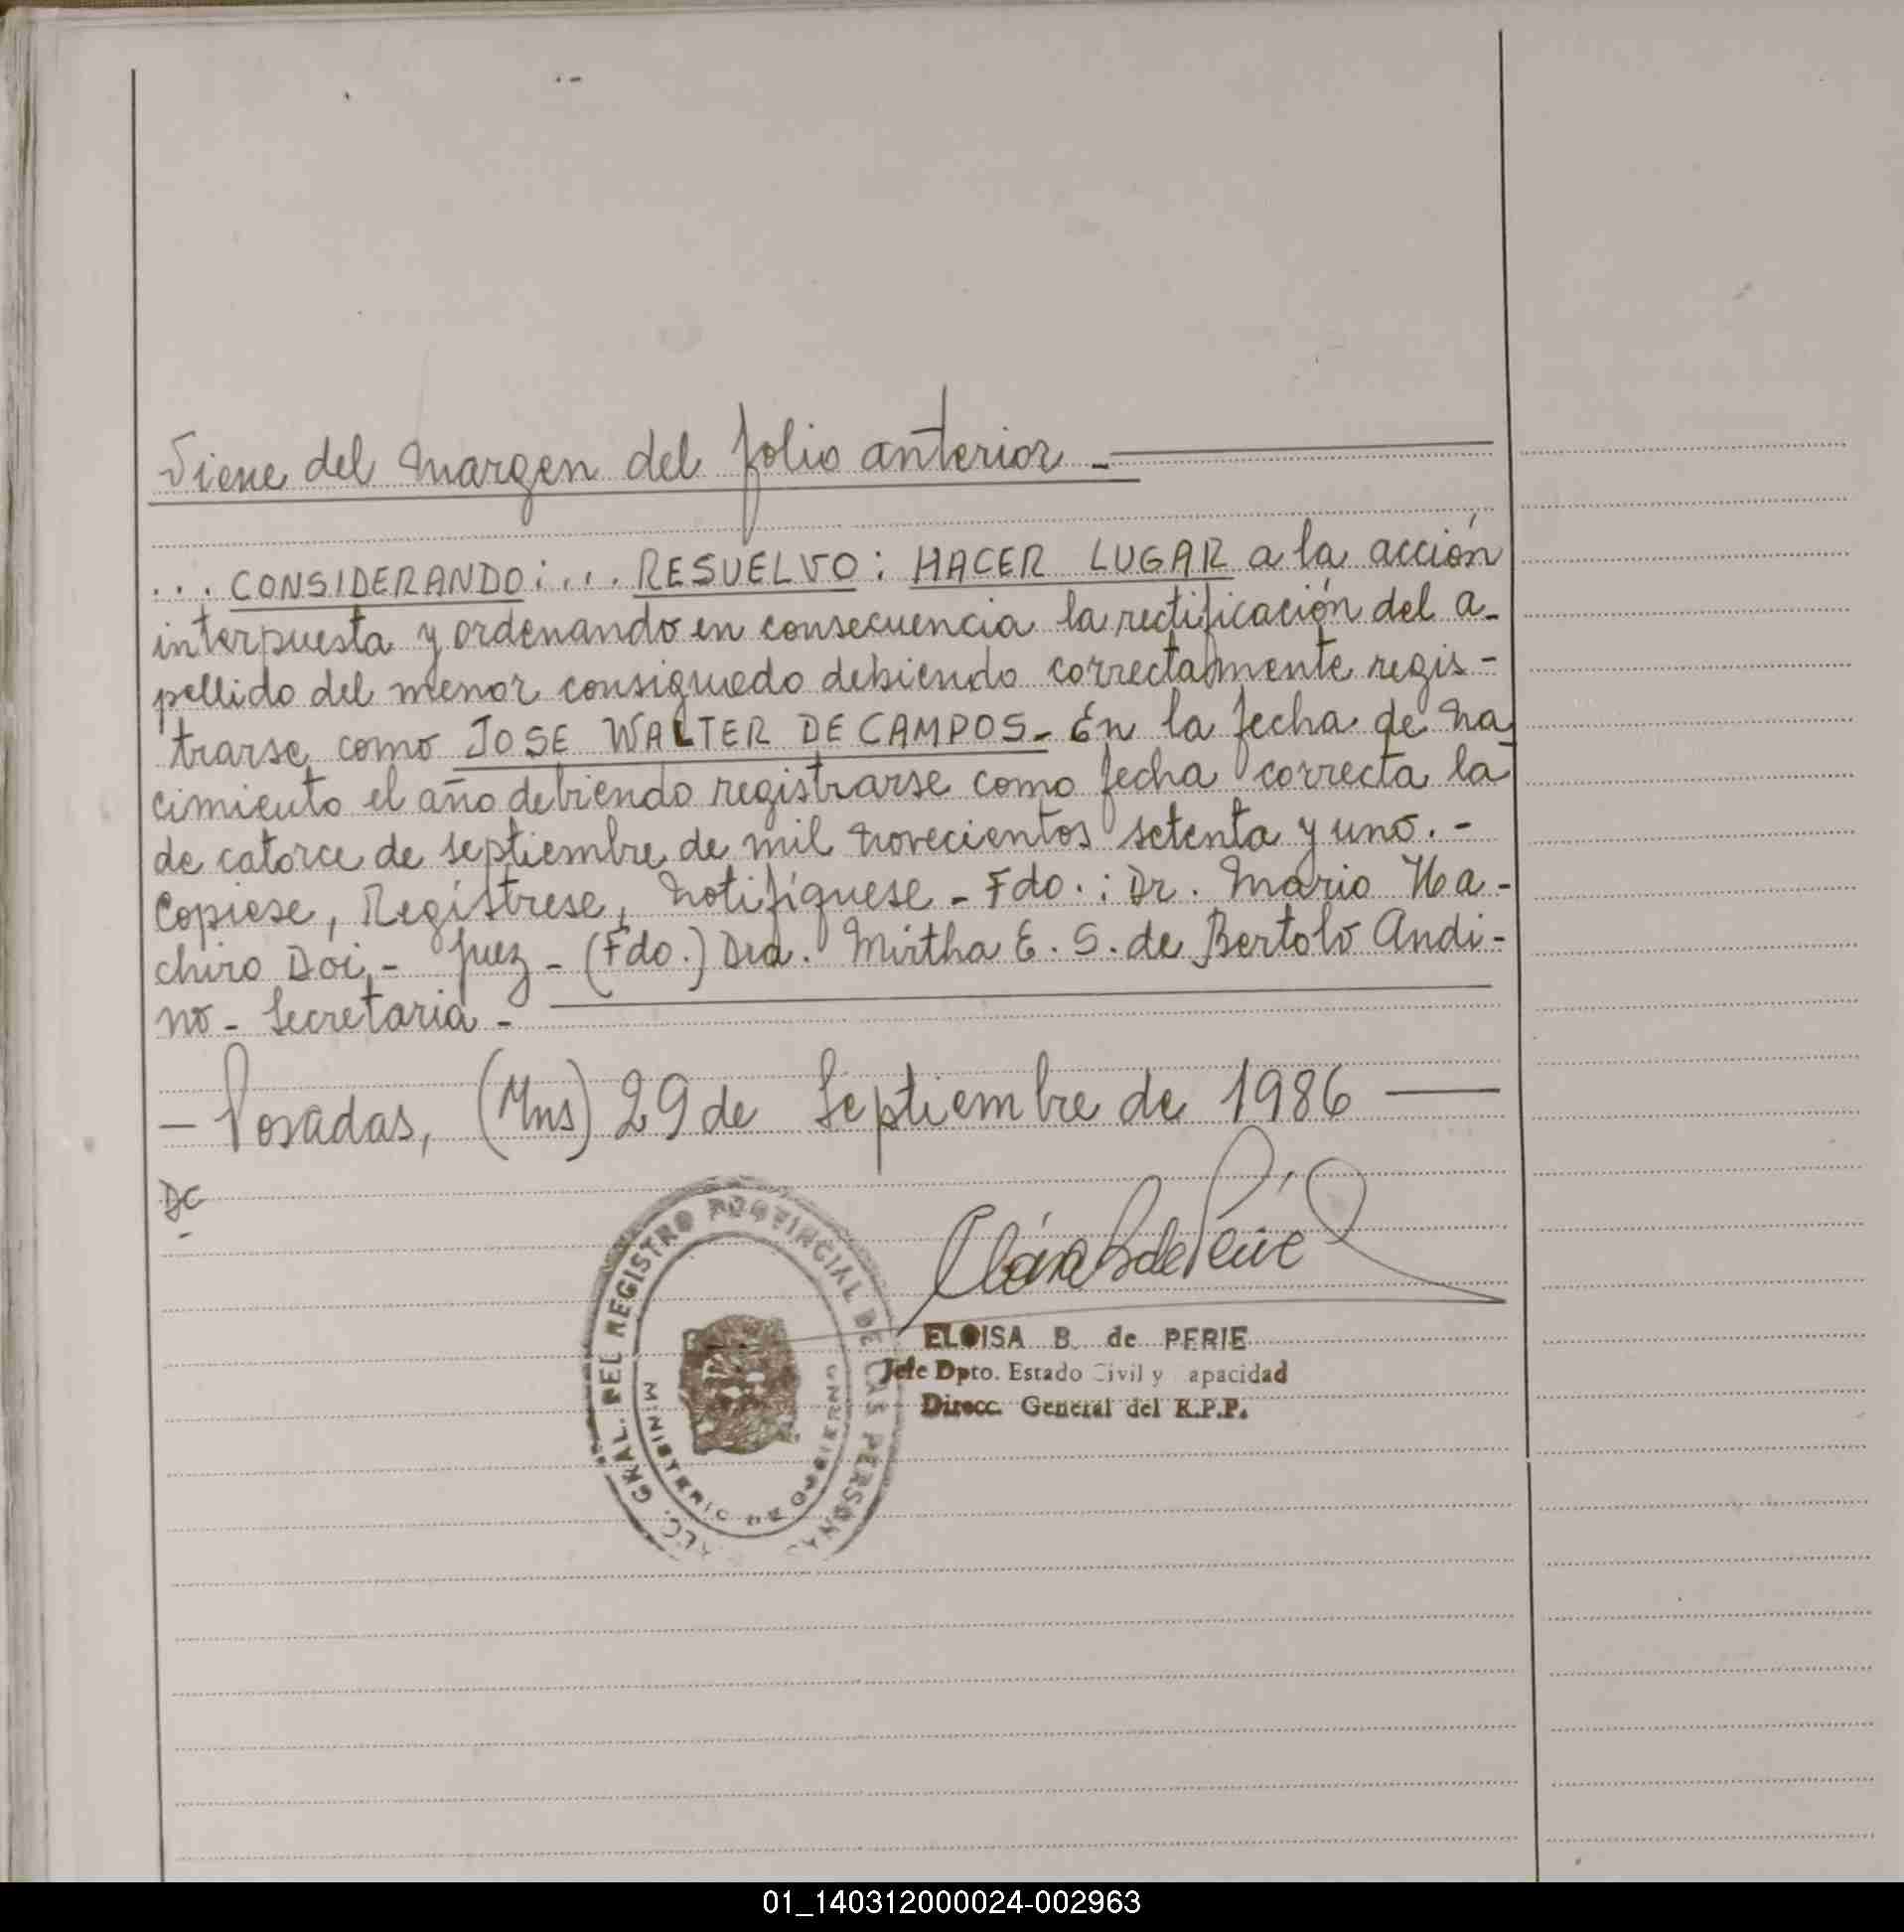 Viene del margen del folio anterior -
... CONSIDERANDO: ... RESUELVO: HACER LUGAR a la acción
interpuesta y ordenando en consecuencia la rectificación del a-
pellido del menor consignado debiendo correctamente regis-
trarse como JOSE WALTER DE CAMPOS - En la fecha de na
cimiento el año debiendo registrarse como fecha correcta la
de catorce de septiembre de mil novecientos setenta y uno. -
Copiese, Regístrese, Notifíquese - Fdo.: Dr. Mario Ha-
chiro Doi, - Juez - (Fdo.) Dra. Mirtha E. S. de Bertolo Andi-
no - Secretaria -
- Posadas, (Mns) 29 de Septiembre de 1986
DC
GRAL. DEL REGISTRO PROVINCIAL DE LAS PERSONAS
MINISTERIO DE GOBIERNO
ELOISA B. de PERIE
Jefe Dpto. Estado Civil y apacidad
Direcc. General del R.P.P.
01_140312000024-002963